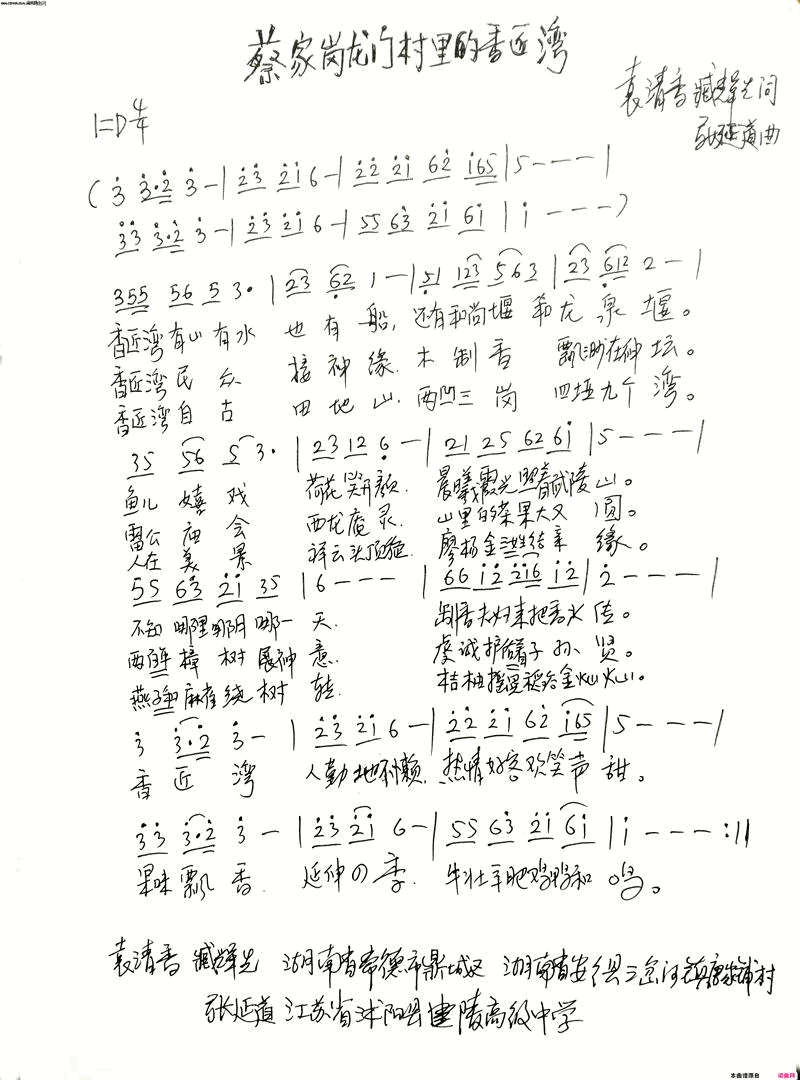 蔡家岗龙门村里的香匠湾
袁清香 臧辉先 词
1=D 4/4 张延道 曲
( 3 3·2 3 - | 23 21 6 - | 22 21 62 165 | 5 - - - |
33 3·2 3 - | 23 21 6 - | 55 63 21 61 | 1 - - - )
355 56 5 3· | 23 62 1 - | 51 123 563 | 23 612 2 - |
香匠湾有山有水 也有船, 还有和尚堰 和龙泉堰。
香匠湾民众 接神缘. 木制香 飘洒在神坛。
香匠湾自古 田地山. 两凹三岗 四垭九个湾。
35 56 5 3· | 23 12 6 - | 21 25 62 61 | 5 - - - |
鱼儿嬉戏 荷花笑开颜. 晨曦霞光照着武陵山。
雷公庙会 西龙庵灵. 山里的茶果大又圆。
人在美景 祥云头顶 廖杨金 结亲缘。
55 63 21 35 | 6 - - - | 66 12 216 12 | 2 - - - |
不知哪里哪阴哪一天. 制香夫妇来把香火传。
西 樟树展神意. 虔诚护 着子孙贤。
燕子和麻雀绕树转. 桔柚 稻谷金灿灿。
3 3·2 3 - | 23 21 6 - | 22 21 62 165 | 5 - - - |
香匠湾 人勤地不懒. 热情好客欢笑声甜。
33 3·2 3 - | 23 21 6 - | 55 63 21 61 | 1 - - - :||
果味飘香. 延伸の季. 牛壮羊肥鸡鸭和鸣。
袁清香 臧辉先 湖南省常德市鼎城区 湖南省安 县 镇 村
张延道 江苏省沭阳县建陵高级中学
本曲谱源自 词曲网